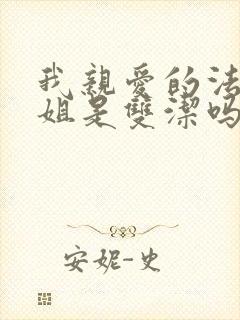 我親愛的法
姐是雙潔嗎
安妮-史